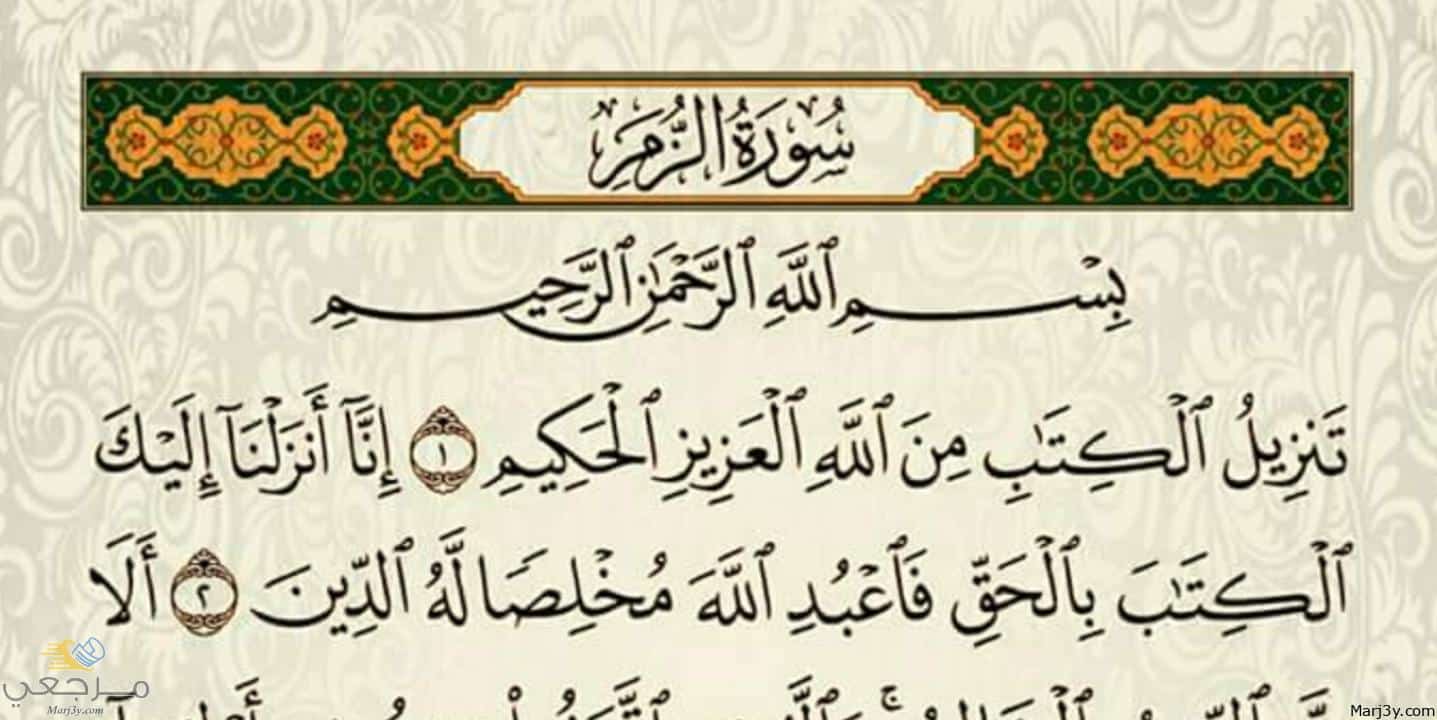 سُورَةُ الزُّمَرِ
بِسْمِ ٱللَّهِ ٱلرَّحْمَٰنِ ٱلرَّحِيمِ
تَنزِيلُ ٱلْكِتَٰبِ مِنَ ٱللَّهِ ٱلْعَزِيزِ ٱلْحَكِيمِ ١ إِنَّآ أَنزَلْنَآ إِلَيْكَ
ٱلْكِتَٰبَ بِٱلْحَقِّ فَٱعْبُدِ ٱللَّهَ مُخْلِصًا لَّهُ ٱلدِّينَ ٢ أَلَا
مرجعي
Marj3y.com
Marj3y.com